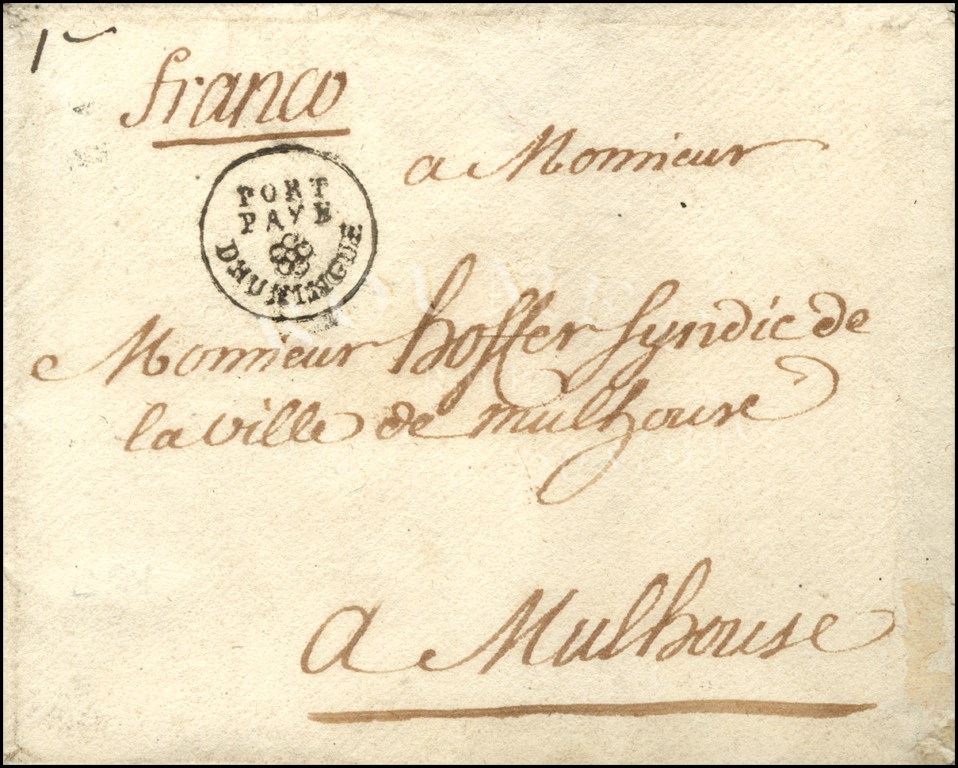 franco
a Monsieur
PORT
PAYE
DHUNINGUE
Monsieur hoffer Syndic de
la ville de mulhouse
a Mulhouse